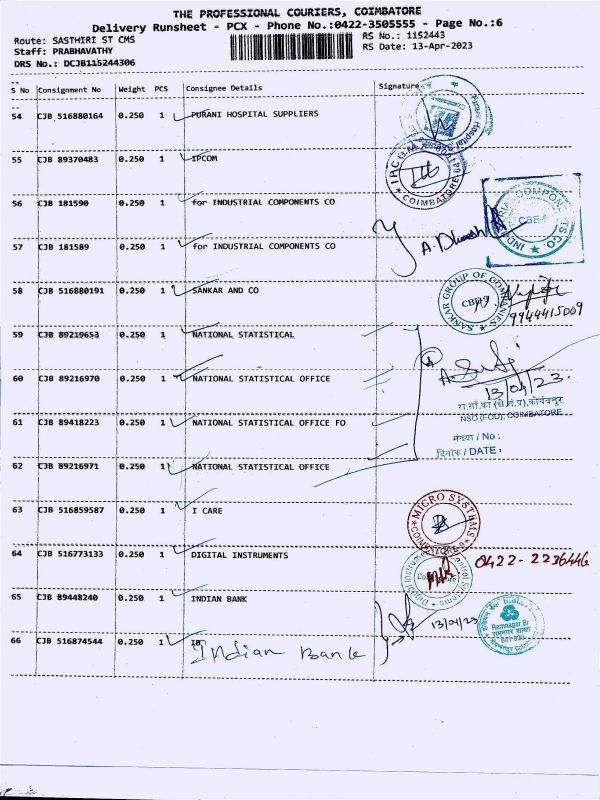 THE PROFESSIONAL COURIERS, COIMBATORE
Delivery Runsheet - PCX - Phone No.:0422-3505555 - Page No.:6
Route: SASTHIRI ST CMS
RS No.: 1152443
Staff: PRABHAVATHY
RS Date: 13-Apr-2023
DRS No.: DCJB115244306
S No Consignment No Weight PCS Consignee Details Signature
54 CJB 516880164 0.250 1 PURANI HOSPITAL SUPPLIERS
55 CJB 89370483 0.250 1 IPCOM
IPCOM
COIMBATORE
56 CJB 181590 0.250 1 for INDUSTRIAL COMPONENTS CO
CBE-9
57 CJB 181589 0.250 1 for INDUSTRIAL COMPONENTS CO
A. Dhinesh
58 CJB 516880191 0.250 1 SANKAR AND CO
SANKAR GROUP OF COMPANIES
CBE-9
9944415009
59 CJB 89219653 0.250 1 NATIONAL STATISTICAL
60 CJB 89216970 0.250 1 NATIONAL STATISTICAL OFFICE
13/04/23.
NSO (FOD), COIMBATORE
61 CJB 89418223 0.250 1 NATIONAL STATISTICAL OFFICE FO
संख्या / No :
दिनांक / DATE :
62 CJB 89216971 0.250 1 NATIONAL STATISTICAL OFFICE
63 CJB 516859587 0.250 1 I CARE
MICRO SYSTEMS
COIMBATORE-9
64 CJB 516773133 0.250 1 DIGITAL INSTRUMENTS
0422-2236446
65 CJB 89448240 0.250 1 INDIAN BANK
13/04/23
Ramnagar Br
66 CJB 516874544 0.250 1 IB
Indian Bank